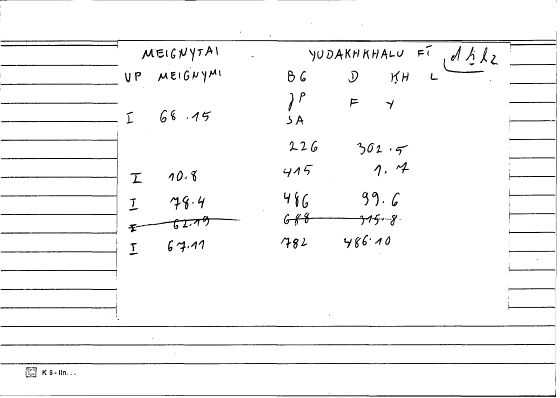 MEIGNYTAI YUDAKHKHALU FI
UP MEIGNYMI BG D KH L
JP F Y
I 68.15 SA
226 302.5
I 10.8 415 1.7
I 78.4 486 99.6
I 62.19 688 315.8
I 67.11 782 486.10
K 5 - lin...